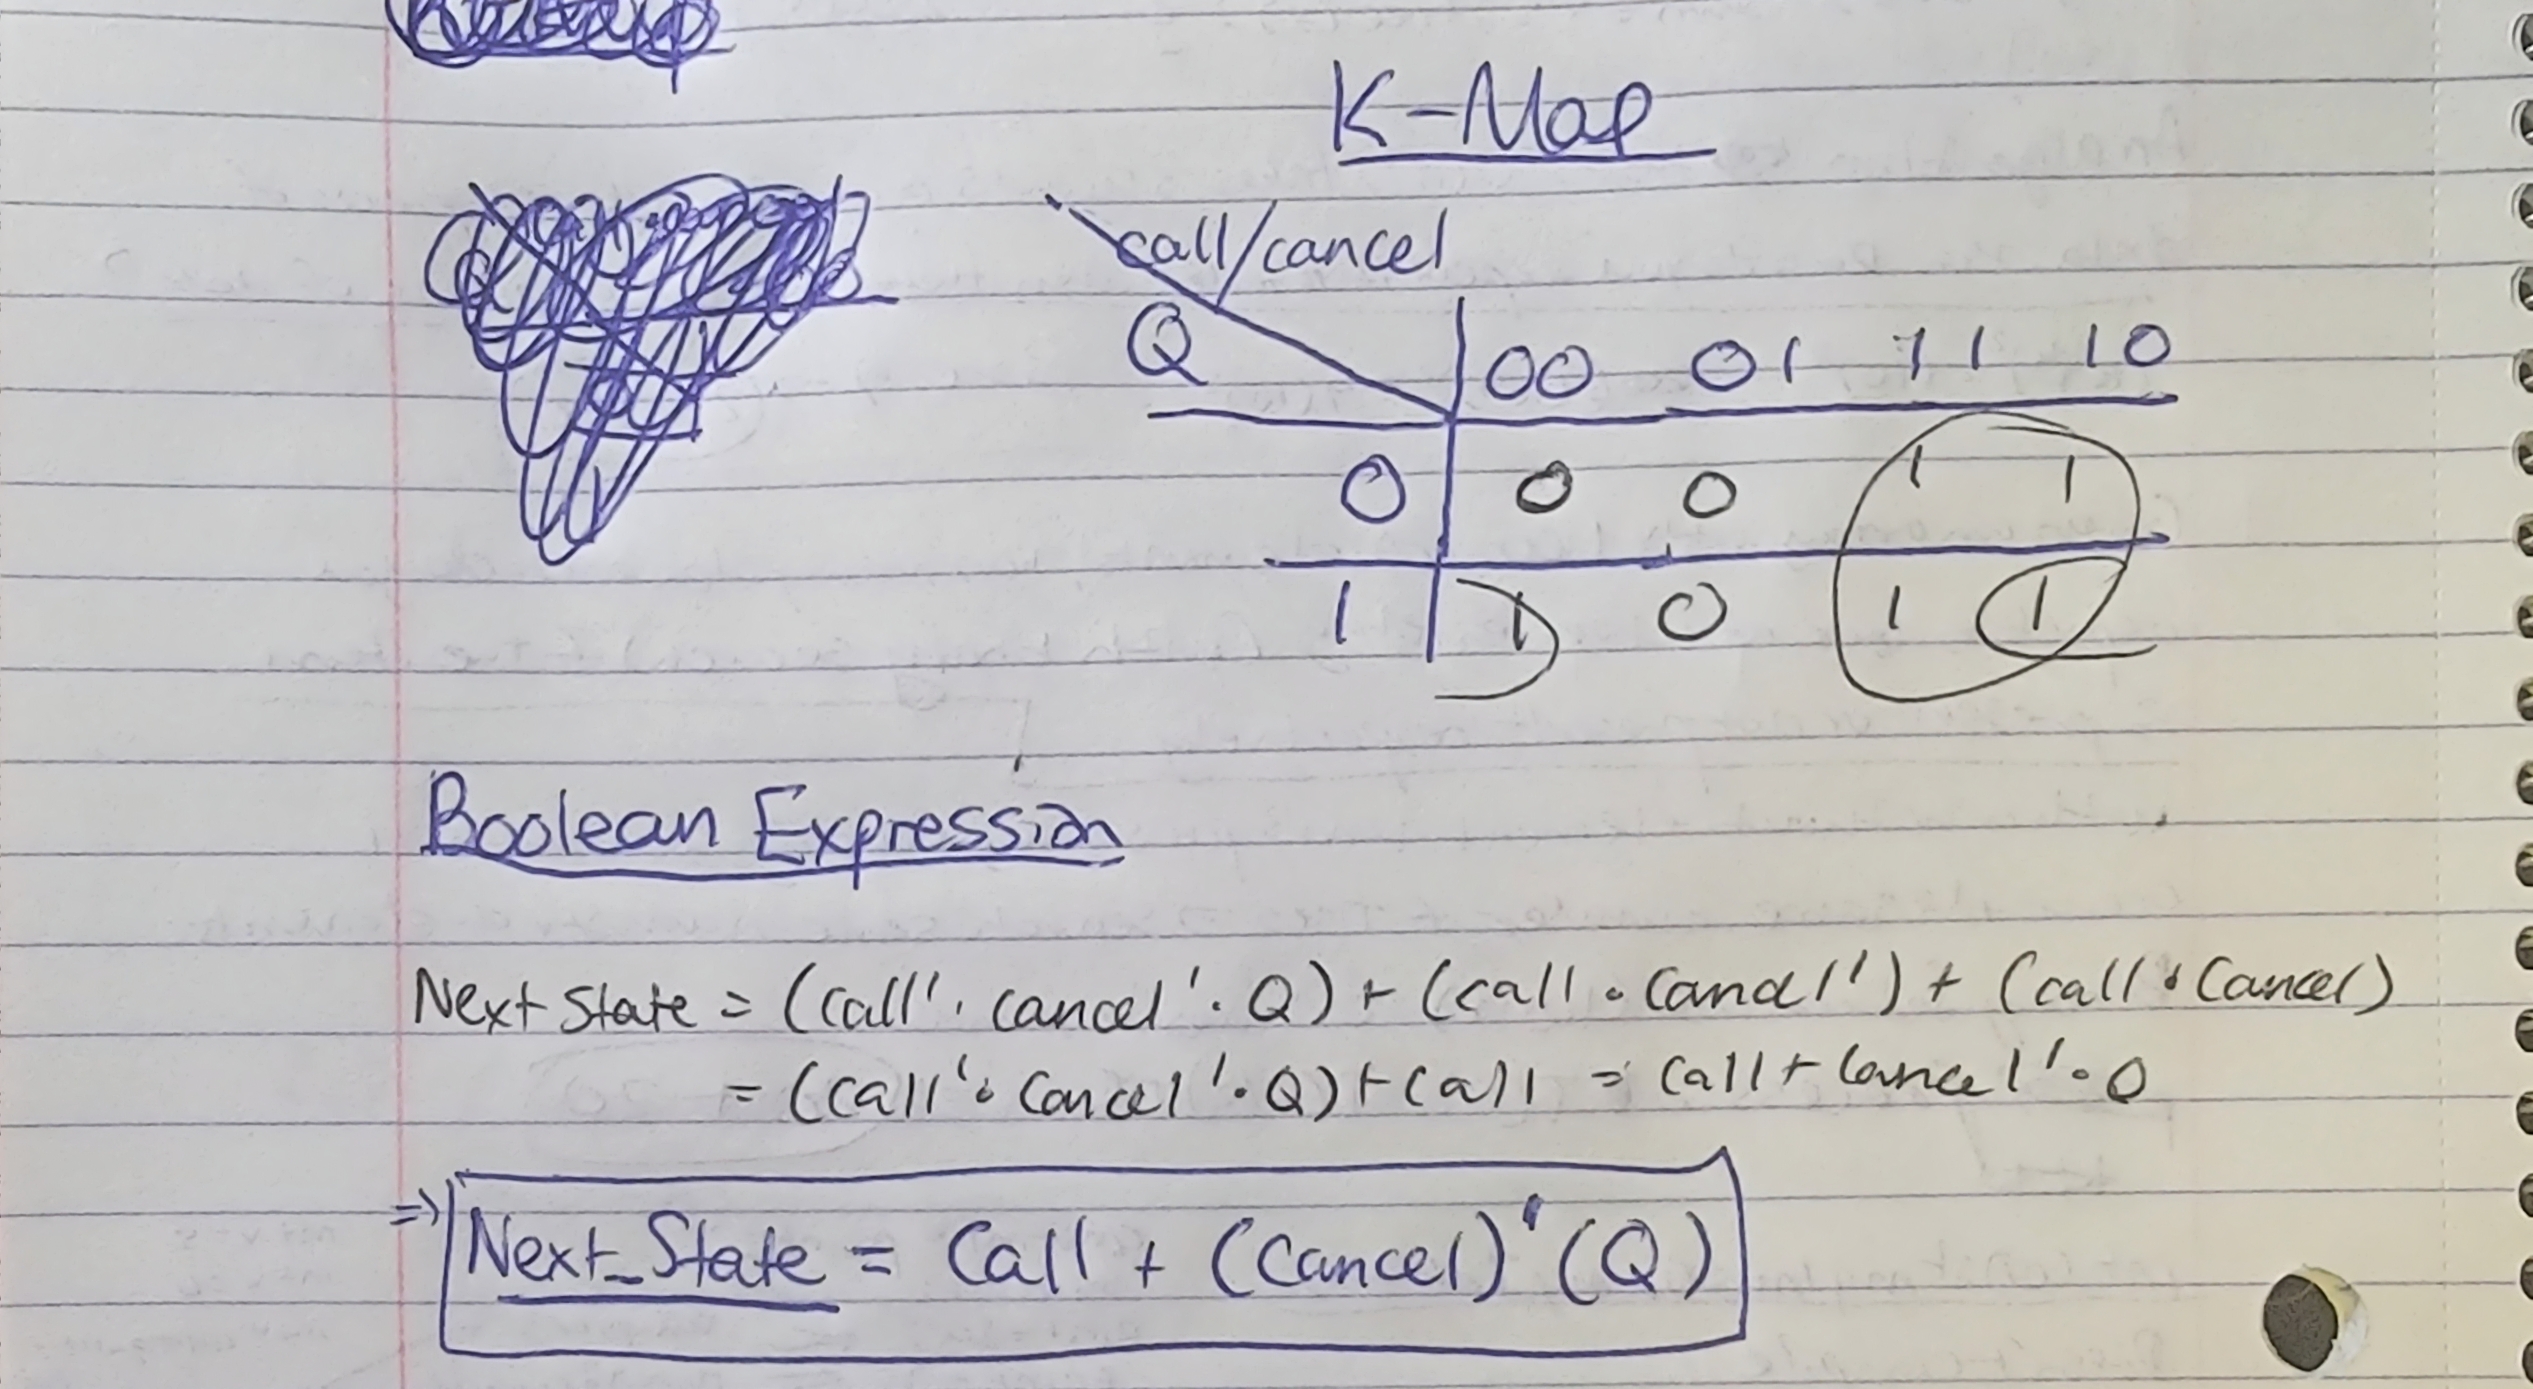 K-Map
call/cancel
Q 00 01 11 10
0 0 0 1 1
1 1 0 1 1
Boolean Expression
Next State = (call' · cancel' · Q) + (call · Cancel') + (call · Cancel)
= (call' · Cancel' · Q) + Call = Call + Cancel' · Q
=> Next_State = Call + (Cancel)' (Q)